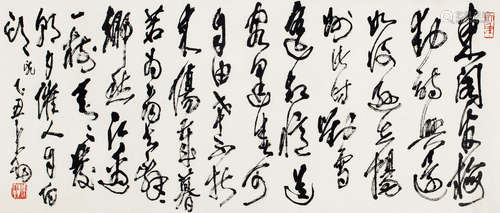 東閣官梅
動詩興還
如何遜在揚
州此時對雪
遙相憶送
客逢春可
自由幸不折
來傷歲暮
若為看去亂
鄉愁江邊
一樹垂々發
朝夕催人自白
頭
乙丑